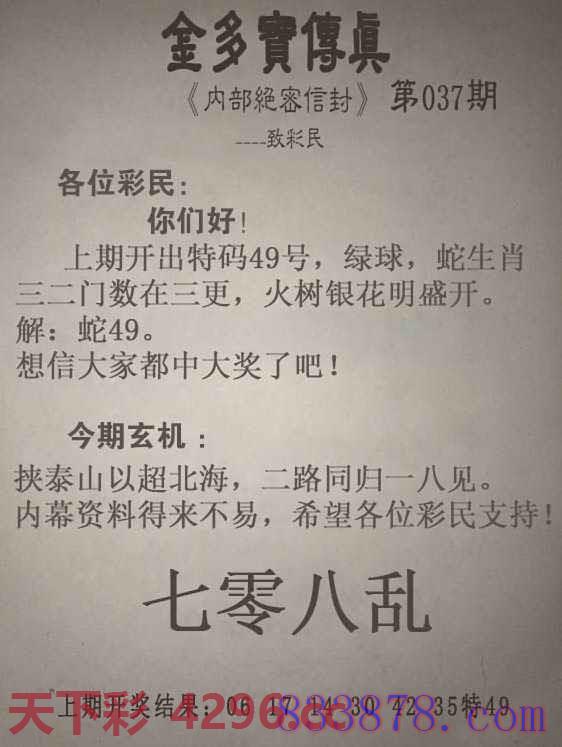 金多寶傳眞
《内部絕密信封》 第037期
----致彩民
各位彩民:
你们好!
上期开出特码49号，绿球，蛇生肖
三二门数在三更，火树银花明盛开。
解：蛇49。
想信大家都中大奖了吧！
今期玄机：
挟泰山以超北海，二路同归一八见。
内幕资料得来不易，希望各位彩民支持！
七零八乱
上期开奖结果：06 17 14 30 42 35特49
天下彩 4296.cc
883878.com